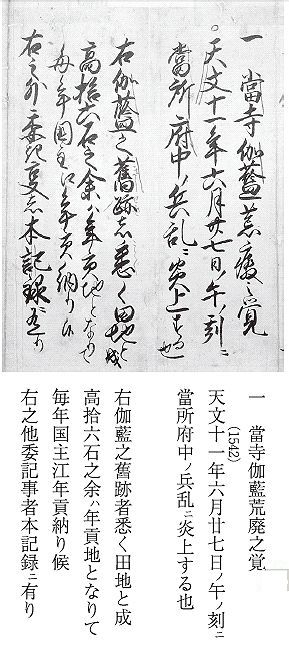 一 當寺伽藍荒廢之覚
天文十一年六月廿七日ノ午ノ刻ニ
當所府中ノ兵乱ニ炎上する也
右伽藍之舊跡志悉く田地と成
高拾六石之余ハ年貢地となりて
毎年国主江年貢納り候
右之外委記事志本記録ニ有り
一 當寺伽藍荒廃之覚
(1542)
天文十一年六月廿七日ノ午ノ刻ニ
當所府中ノ兵乱ニ炎上する也
右伽藍之舊跡者悉く田地と成
高拾六石之余ハ年貢地となりて
毎年国主江年貢納り候
右之他委記事者本記録ニ有り